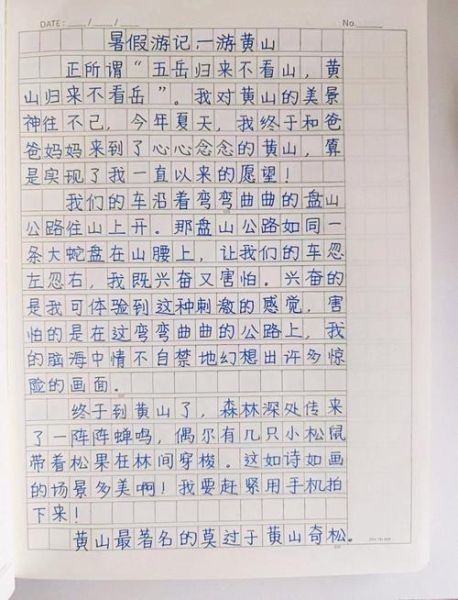 DATE: / /
No.
暑假游记,一游黄山
正所谓“五岳归来不看山,黄
山归来不看岳”。我对黄山的美景
神往不已,今年夏天,我终于和爸
爸妈妈来到了心心念念的黄山,算
是实现了我一直以来的愿望!
我们的车沿着弯弯曲曲的盘山
公路往山上开。那盘山公路如同一
条大蛇盘在山腰上,让我们的车忽
左忽右,我既兴奋又害怕。兴奋的
是我可体验到这种刺激的感觉,害
怕的是在这弯弯曲曲的公路上,我
的脑海中情不自禁地幻想出许多惊
险的画面。
终于到黄山了,森林深处传来
了一阵阵蝉鸣,偶尔有几只小松鼠
带着松果在林间穿梭。这如诗如画
的场景多美啊!我要赶紧用手机拍
下来!
黄山最著名的莫过于黄山奇松。